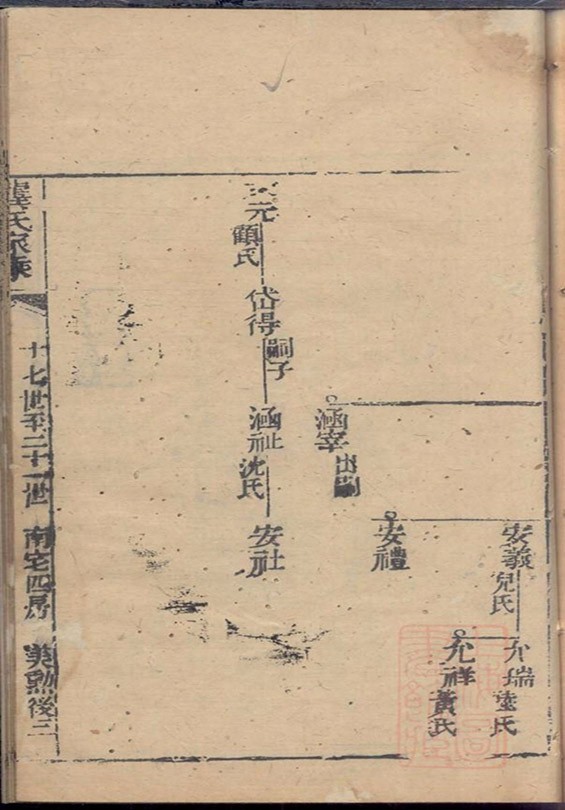 安義
兒氏
允瑞
陸氏
允祥
黃氏
安禮
涵宰
出嗣
元
顧氏
岱得
嗣子
涵祉
沈氏
安社
龔氏家乘
十七世至二十一世 南宅四房 美勲後三